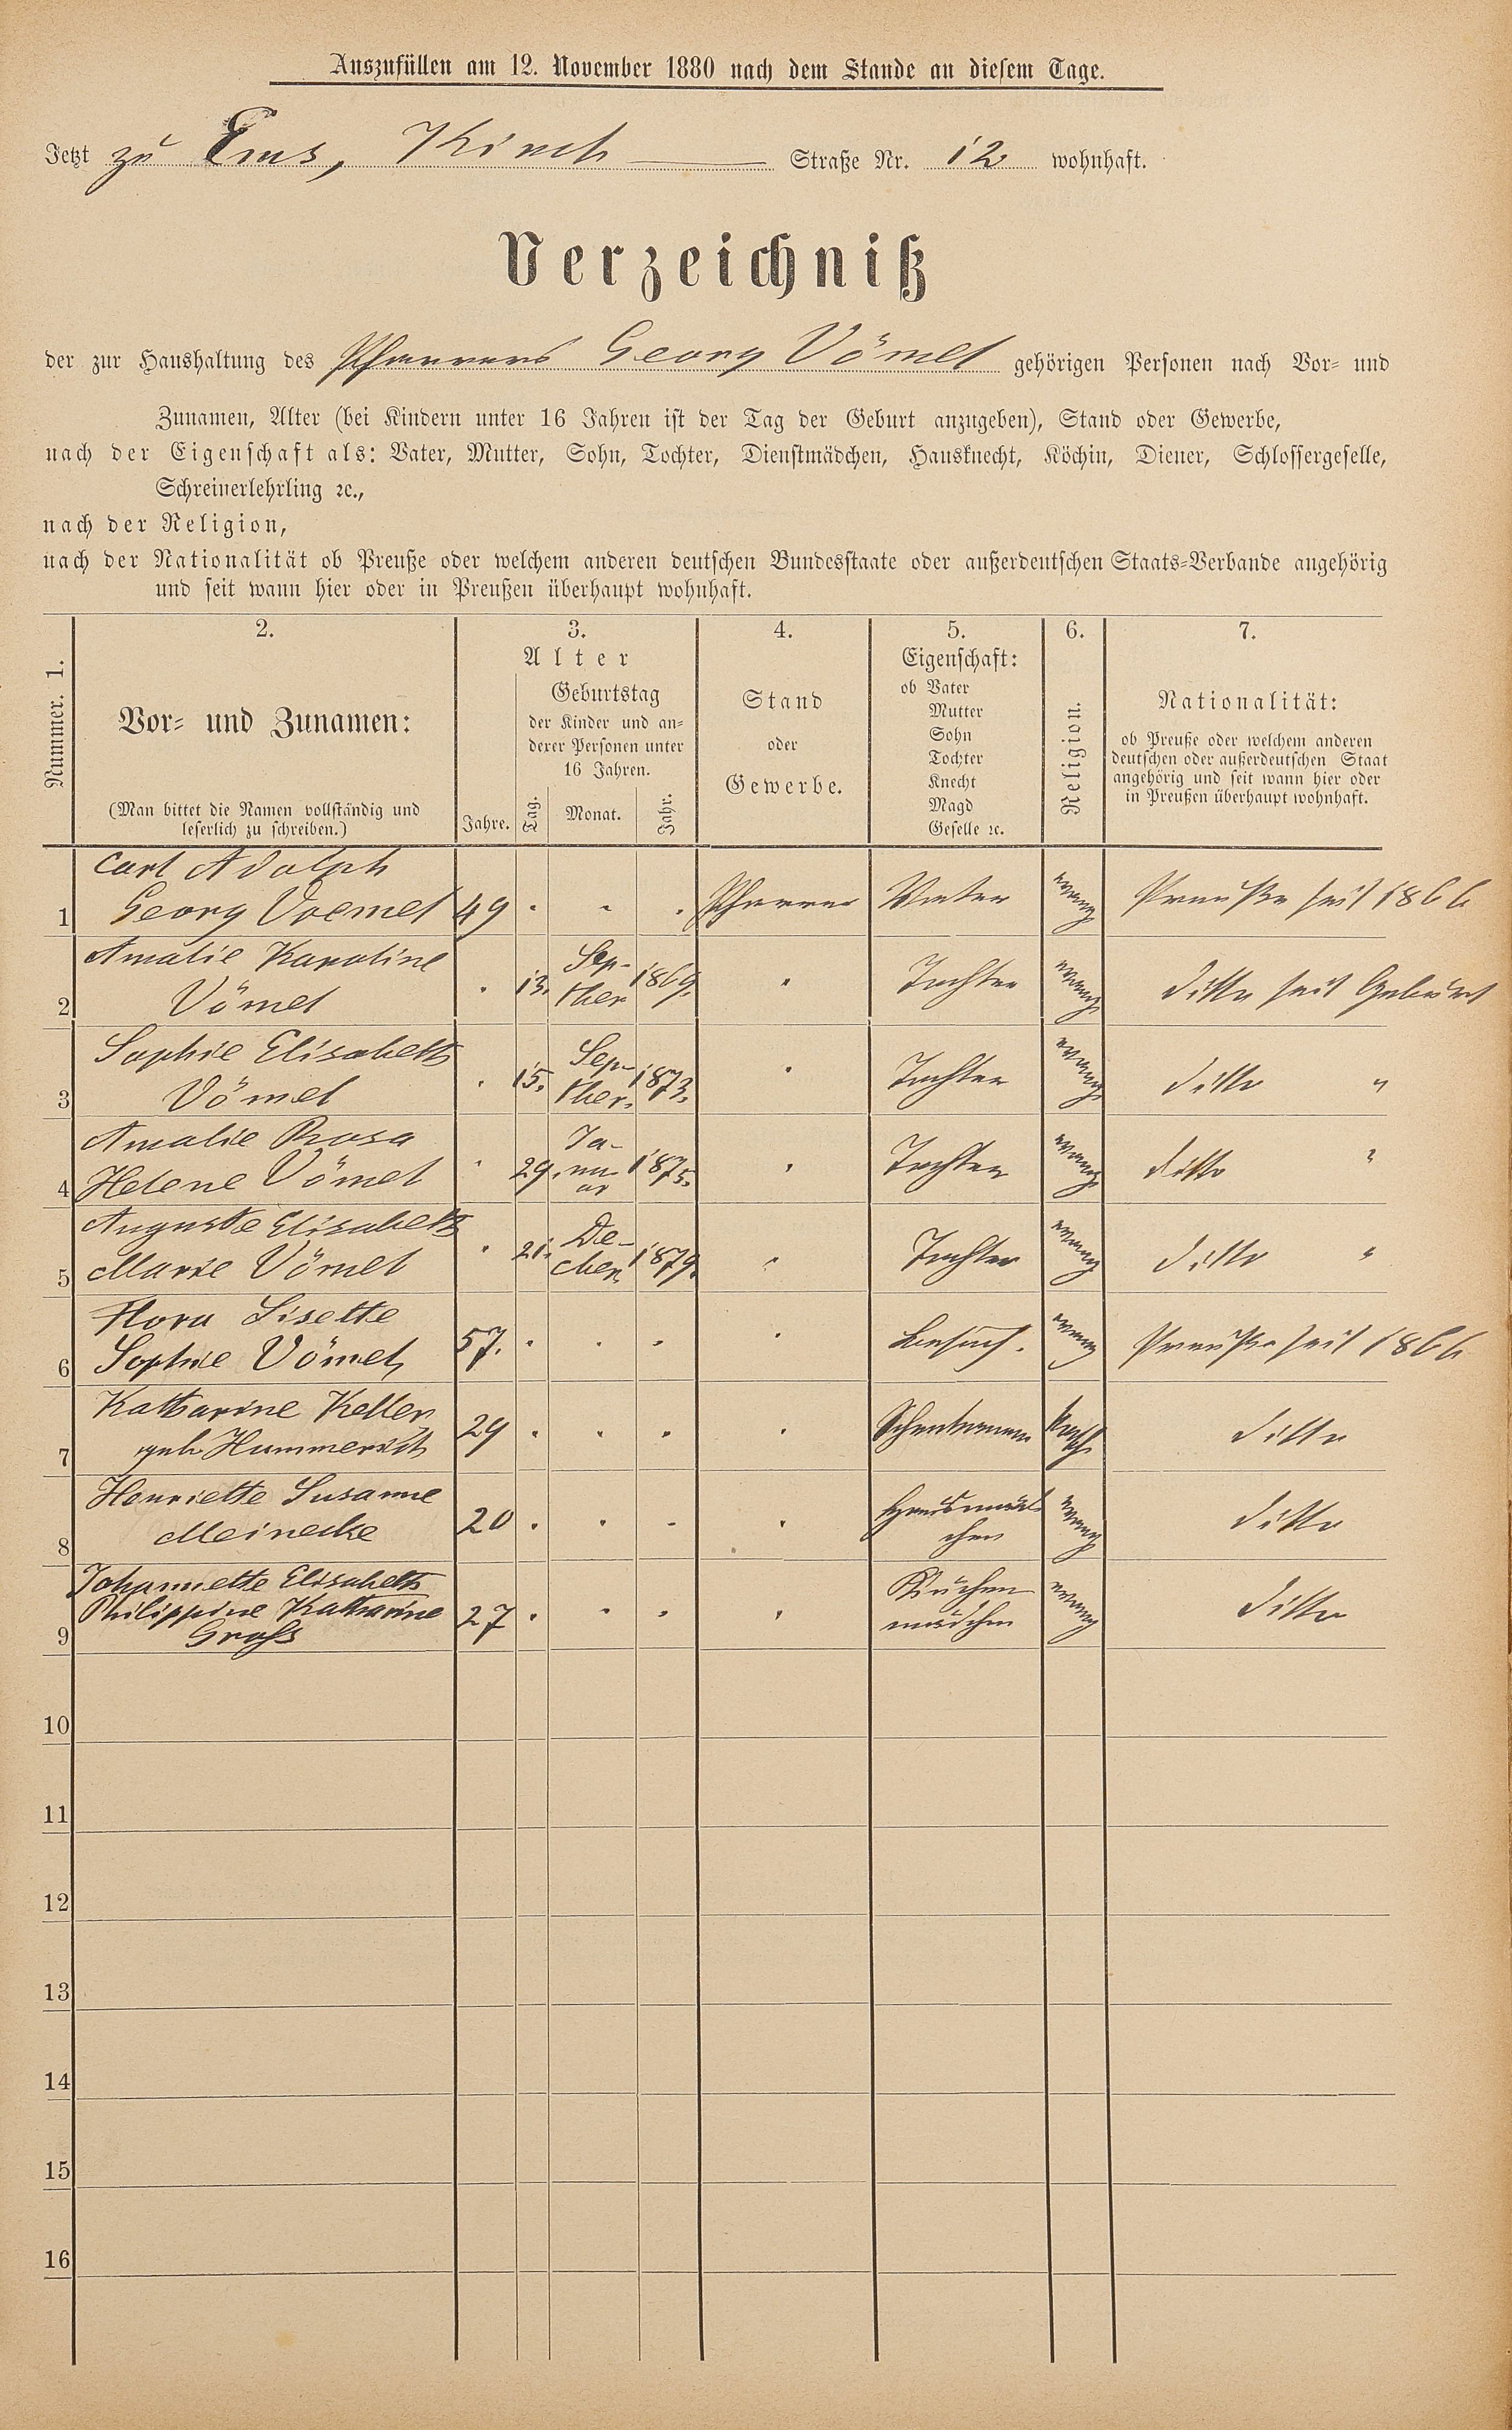 Auszufüllen am 12. November 1880 nach dem Stande an diesem Tage.
Jetzt zu Ems, Kirch Straße Nr. 12 wohnhaft.
Verzeichniß
der zur Haushaltung des Pfarrers Georg Vömel gehörigen Personen nach Vor- und
Zunamen, Alter (bei Kindern unter 16 Jahren ist der Tag der Geburt anzugeben), Stand oder Gewerbe,
nach der Eigenschaft als: Vater, Mutter, Sohn, Tochter, Dienstmädchen, Hausknecht, Köchin, Diener, Schlossergeselle,
Schreinerlehrling ꝛc.,
nach der Religion,
nach der Nationalität ob Preuße oder welchem anderen deutschen Bundesstaate oder außerdeutschen Staats-Verbande angehörig
und seit wann hier oder in Preußen überhaupt wohnhaft.
Nummer. 1.
2.
Vor- und Zunamen:
(Man bittet die Namen vollständig und
leserlich zu schreiben.)
3.
Alter
Jahre.
Geburtstag
der Kinder und an-
derer Personen unter
16 Jahren.
Tag. Monat. Jahr.
4.
Stand
oder
Gewerbe.
5.
Eigenschaft:
ob Vater
Mutter
Sohn
Tochter
Knecht
Magd
Geselle ꝛc.
6.
Religion.
7.
Nationalität:
ob Preuße oder welchem anderen
deutschen oder außerdeutschen Staat
angehörig und seit wann hier oder
in Preußen überhaupt wohnhaft.
Carl Adolph
1 Georg Voemel 49 " " " Pfarrer Vater evang. Preuße seit 1866
Amalie Karoline Sep-
2 Vömel " 13. tber 1869. " Tochter evang. ditto seit Geburt
Sophie Elisabeth Sep-
3 Vömel " 15. tber. 1873. " Tochter evang. ditto "
Amalie Rosa Ja-
4 Helene Vömel " 29. nu- 1875. " Tochter evang. ditto "
ar
Auguste Elisabeth De-
5 Marie Vömel " 21. cber. 1879. " Tochter evang. ditto "
Flora Lisette
6 Sophie Vömel, 57. " " " " Besuch. evang. Preuße seit 1866
Katharine Keller
7 geb. Hummerich 29 " " " " kath. ditto
Henriette Susanne Hausmäd-
8 Meinecke 20 " " " " chen evang. ditto
Johannette Elisabeth Küchen
Philippine Katharine 27 " " " " mädchen evang. ditto
9 Groß
10
11
12
13
14
15
16